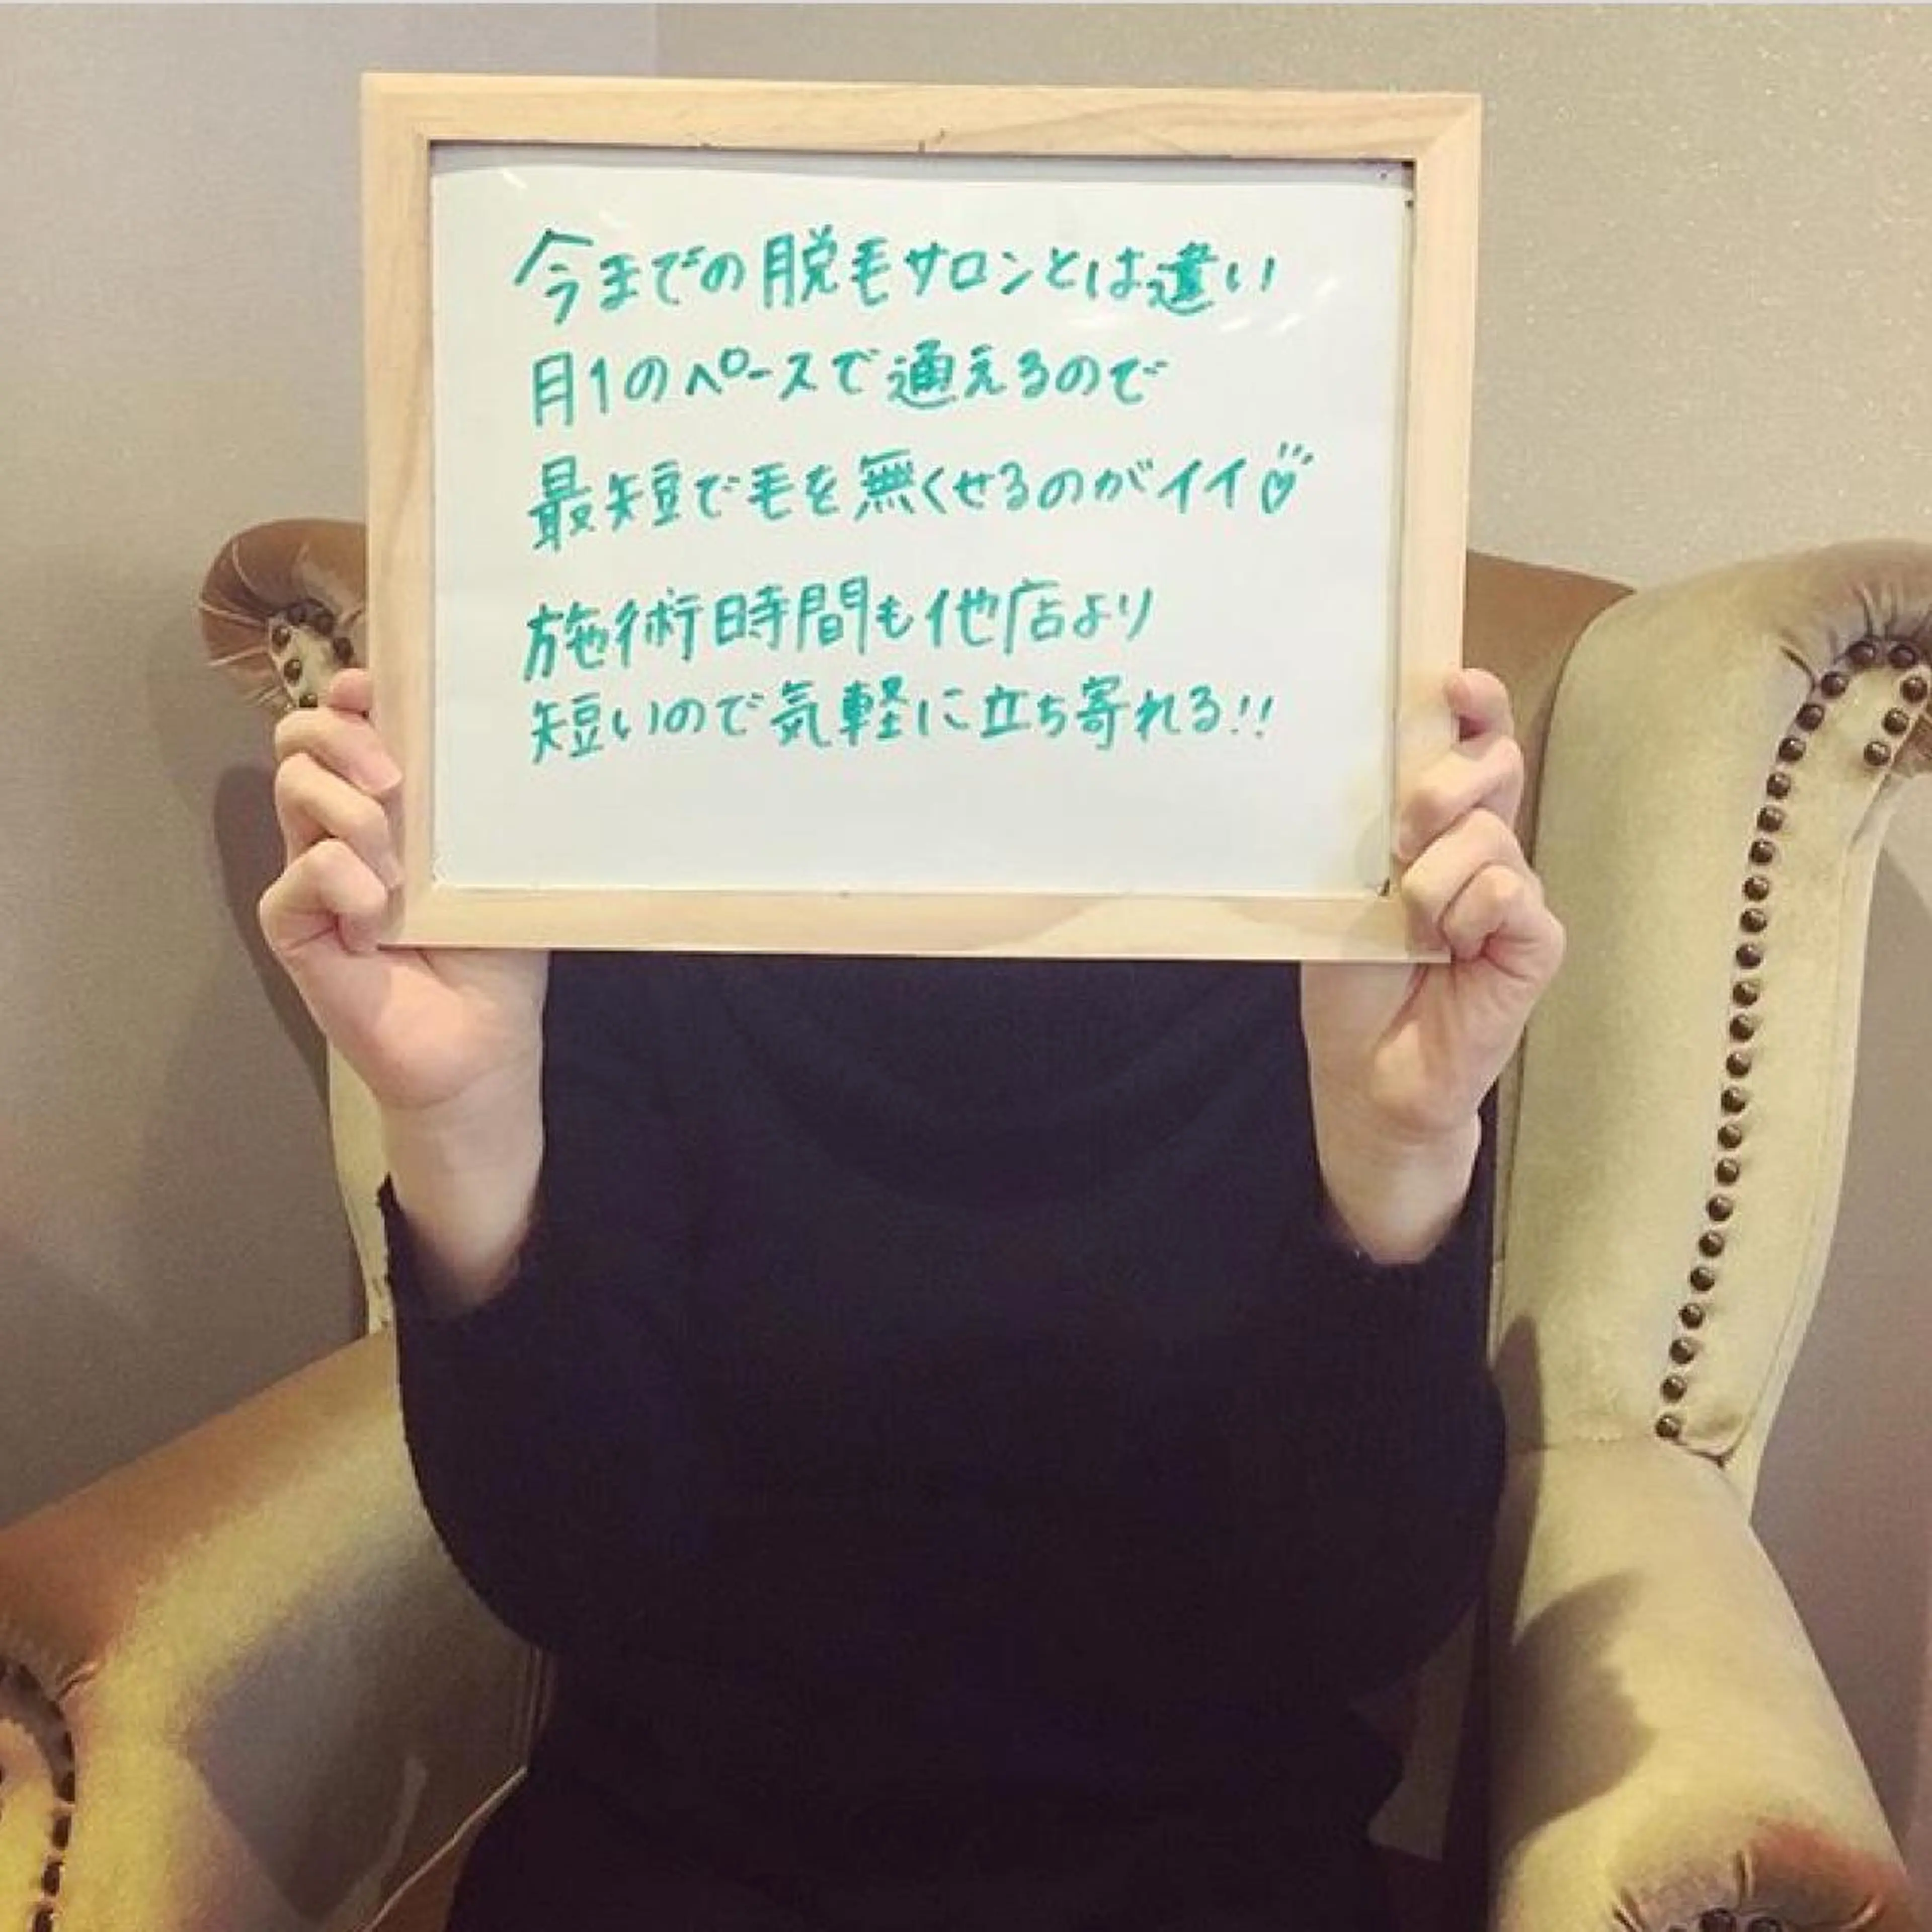 今までの脱毛サロンとは違い
月1のペースで通えるので
最短で毛を無くせるのがイイ♡
施術時間も他店より
短いので気軽に立ち寄れる!!